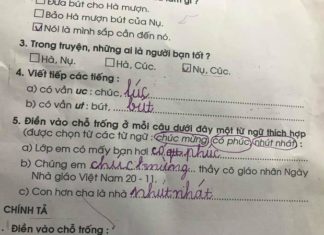 Đưa bút cho Hà mượn.
Bảo Hà mượn bút của Nụ.
Nói là mình sắp cần đến nó.
3. Trong truyện, những ai là người bạn tốt ?
Hà, Nụ. Hà, Cúc. Nụ, Cúc.
4. Viết tiếp các tiếng :
a) có vần uc : chúc, lúc
b) có vần ut : bút, but
5. Điền vào chỗ trống ở mỗi câu dưới đây một từ ngữ thích hợp
(được chọn từ các từ ngữ : chúc mừng, có phúc, nhút nhát) :
a) Lớp em có mấy bạn hơi có phúc
b) Chúng em chúc mừng thầy cô giáo nhân Ngày
Nhà giáo Việt Nam 20 - 11.
c) Con hơn cha là nhà nhút nhát
CHÍNH TẢ
. Điền vào chỗ trống :